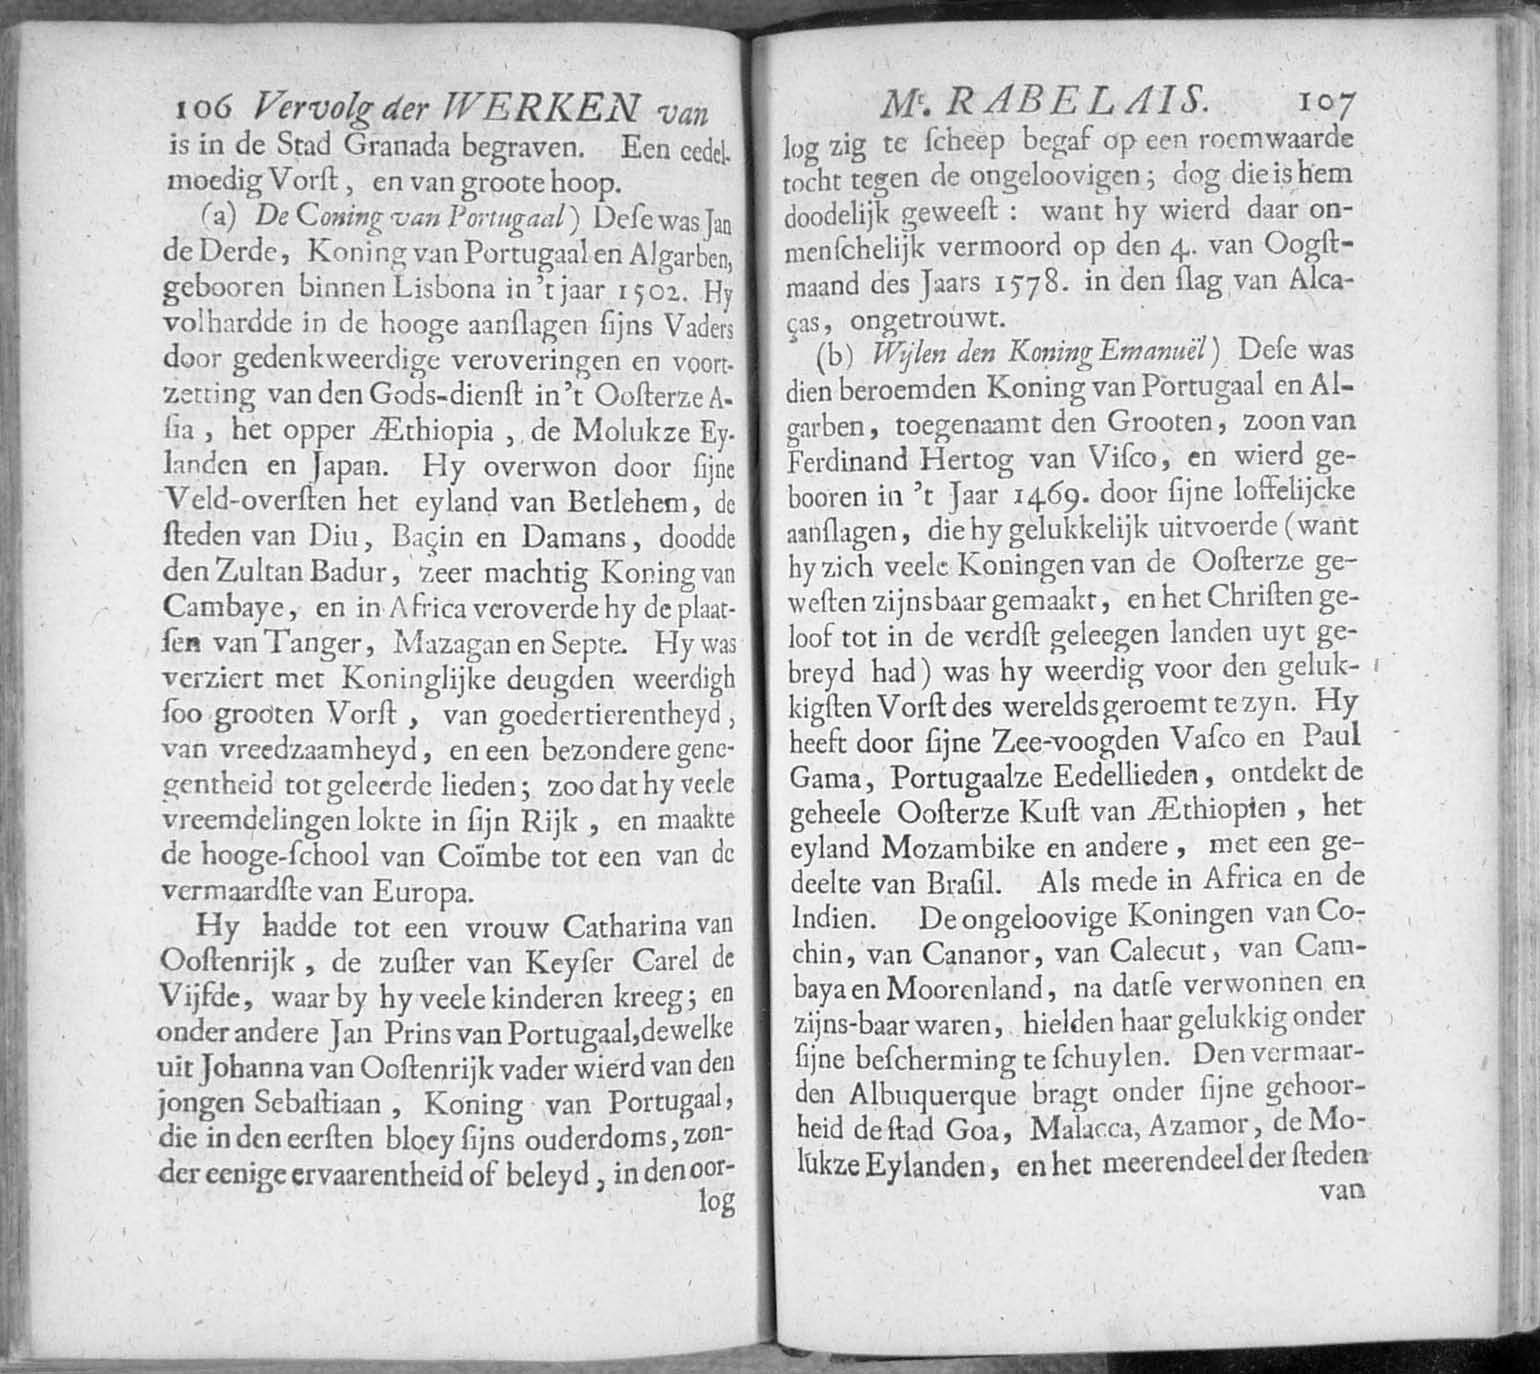 106 Vervolg der WERKEN van
is in de Stad Granada begraven. Een eedel-
moedig Vorſt, en van groote hoop.
(a) De Coning van Portugaal) Deſe was Jan
de Derde, Koning van Portugaal en Algarben,
gebooren binnen Lisbona in 't jaar 1502. Hy
volhardde in de hooge aanſlagen ſijns Vaders
door gedenkweerdige veroveringen en voort-
zetting van den Gods-dienſt in 't Ooſterze A-
ſia, het opper Æthiopia, de Molukze Ey-
landen en Japan. Hy overwon door ſijne
Veld-overſten het eyland van Betlehem, de
ſteden van Diu, Baçin en Damans, doodde
den Zultan Badur, zeer machtig Koning van
Cambaye, en in Africa veroverde hy de plaat-
ſen van Tanger, Mazagan en Septe. Hy was
verziert met Koninglijke deugden weerdigh
ſoo grooten Vorſt, van goedertierentheyd,
van vreedzaamheyd, en een bezondere gene-
gentheid tot geleerde lieden; zoo dat hy veele
vreemdelingen lokte in ſijn Rijk, en maakte
de hooge-ſchool van Coïmbe tot een van de
vermaardſte van Europa.
Hy hadde tot een vrouw Catharina van
Ooſtenrijk, de zuſter van Keyſer Carel de
Vijfde, waar by hy veele kinderen kreeg; en
onder andere Jan Prins van Portugaal, dewelke
uit Johanna van Ooſtenrijk vader wierd van den
jongen Sebaſtiaan, Koning van Portugaal,
die in den eerſten bloey ſijns ouderdoms, zon-
der eenige ervaarentheid of beleyd, in den oor-
log
Mr. RABELAIS. 107
log zig te ſcheep begaf op een roemwaarde
tocht tegen de ongeloovigen; dog die is hem
doodelijk geweeſt: want hy wierd daar on-
menſchelijk vermoord op den 4. van Oogſt-
maand des Jaars 1578. in den ſlag van Alca-
ças, ongetrouwt.
(b) Wijlen den Koning Emanuël) Deſe was
dien beroemden Koning van Portugaal en Al-
garben, toegenaamt den Grooten, zoon van
Ferdinand Hertog van Viſco, en wierd ge-
booren in 't Jaar 1469. door ſijne loffelijcke
aanſlagen, die hy gelukkelijk uitvoerde (want
hy zich veele Koningen van de Ooſterze ge-
weſten zijnsbaar gemaakt, en het Chriſten ge-
loof tot in de verdſt geleegen landen uyt ge-
breyd had) was hy weerdig voor den geluk-
kigſten Vorſt des werelds geroemt te zyn. Hy
heeft door ſijne Zee-voogden Vaſco en Paul
Gama, Portugaalze Eedellieden, ontdekt de
geheele Ooſterze Kuſt van Æthiopien, het
eyland Mozambike en andere, met een ge-
deelte van Braſil. Als mede in Africa en de
Indien. De ongeloovige Koningen van Co-
chin, van Cananor, van Calecut, van Cam-
baya en Moorenland, na datſe verwonnen en
zijns-baar waren, hielden haar gelukkig onder
ſijne beſcherming te ſchuylen. Den vermaar-
den Albuquerque bragt onder ſijne gehoor-
heid de ſtad Goa, Malacca, Azamor, de Mo-
lukze Eylanden, en het meerendeel der ſteden
van